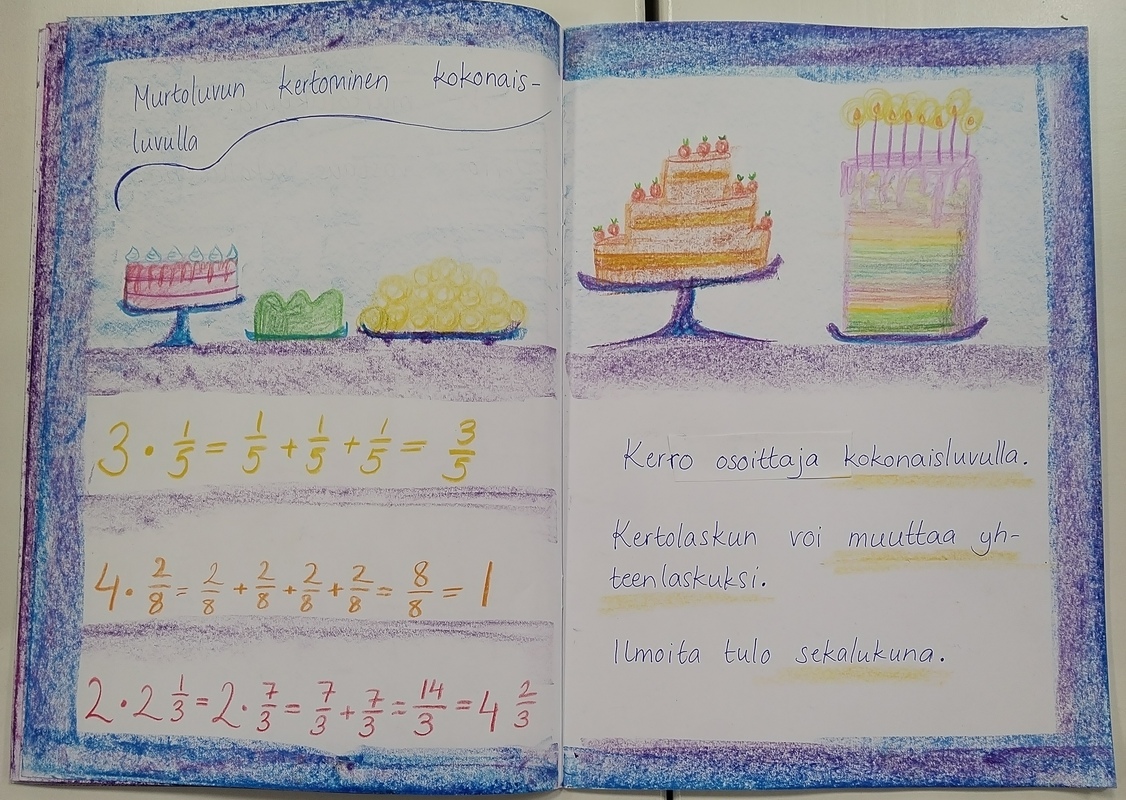 Murtoluvun kertominen kokonais-
luvulla
3 · 1/5 = 1/5 + 1/5 + 1/5 = 3/5
4 · 2/8 = 2/8 + 2/8 + 2/8 + 2/8 = 8/8 = 1
2 · 2 1/3 = 2 · 7/3 = 7/3 + 7/3 = 14/3 = 4 2/3
Kerro osoittaja kokonaisluvulla.
Kertolaskun voi muuttaa yh-
teenlaskuksi.
Ilmoita tulo sekalukuna.